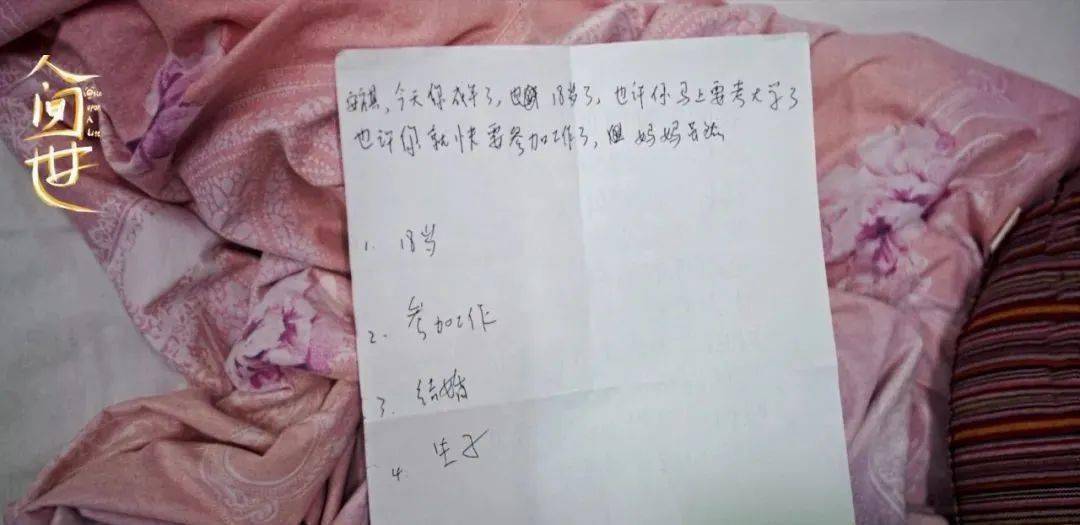 人间世
Once upon a Life
今天你成年了, 18岁了, 也许你马上要考大学了
也许你就快要参加工作了, 但妈妈无法
1. 18岁
2. 参加工作
3. 结婚
4. 生子